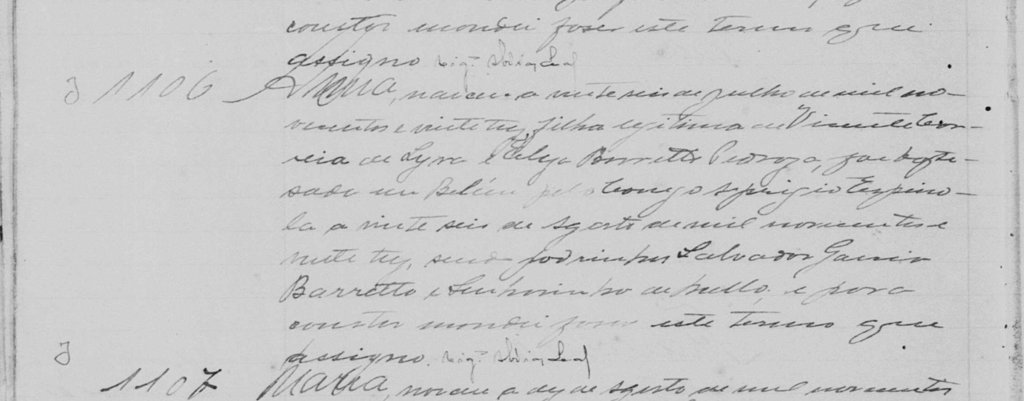 constar mandei fazer este termo que
assigno. Vigº
J 1106 Anna, nasceu a vinte seis de julho de mil no-
vecentos e vinte tres, filha legitima de Vicente Cor-
reia de Lyra e Barretto Pedroza, foi bapti-
sada em Belém pelo Conego
la a vinte seis de Agosto de mil novecentos e
vinte tres, sendo padrinhos Salvador Garcia
Barretto e Senhorinha de Mello, e para
constar mandei fazer este termo que
assigno. Vigº
J
1107 Maria, nasceu a dez de Agosto de mil novecentos